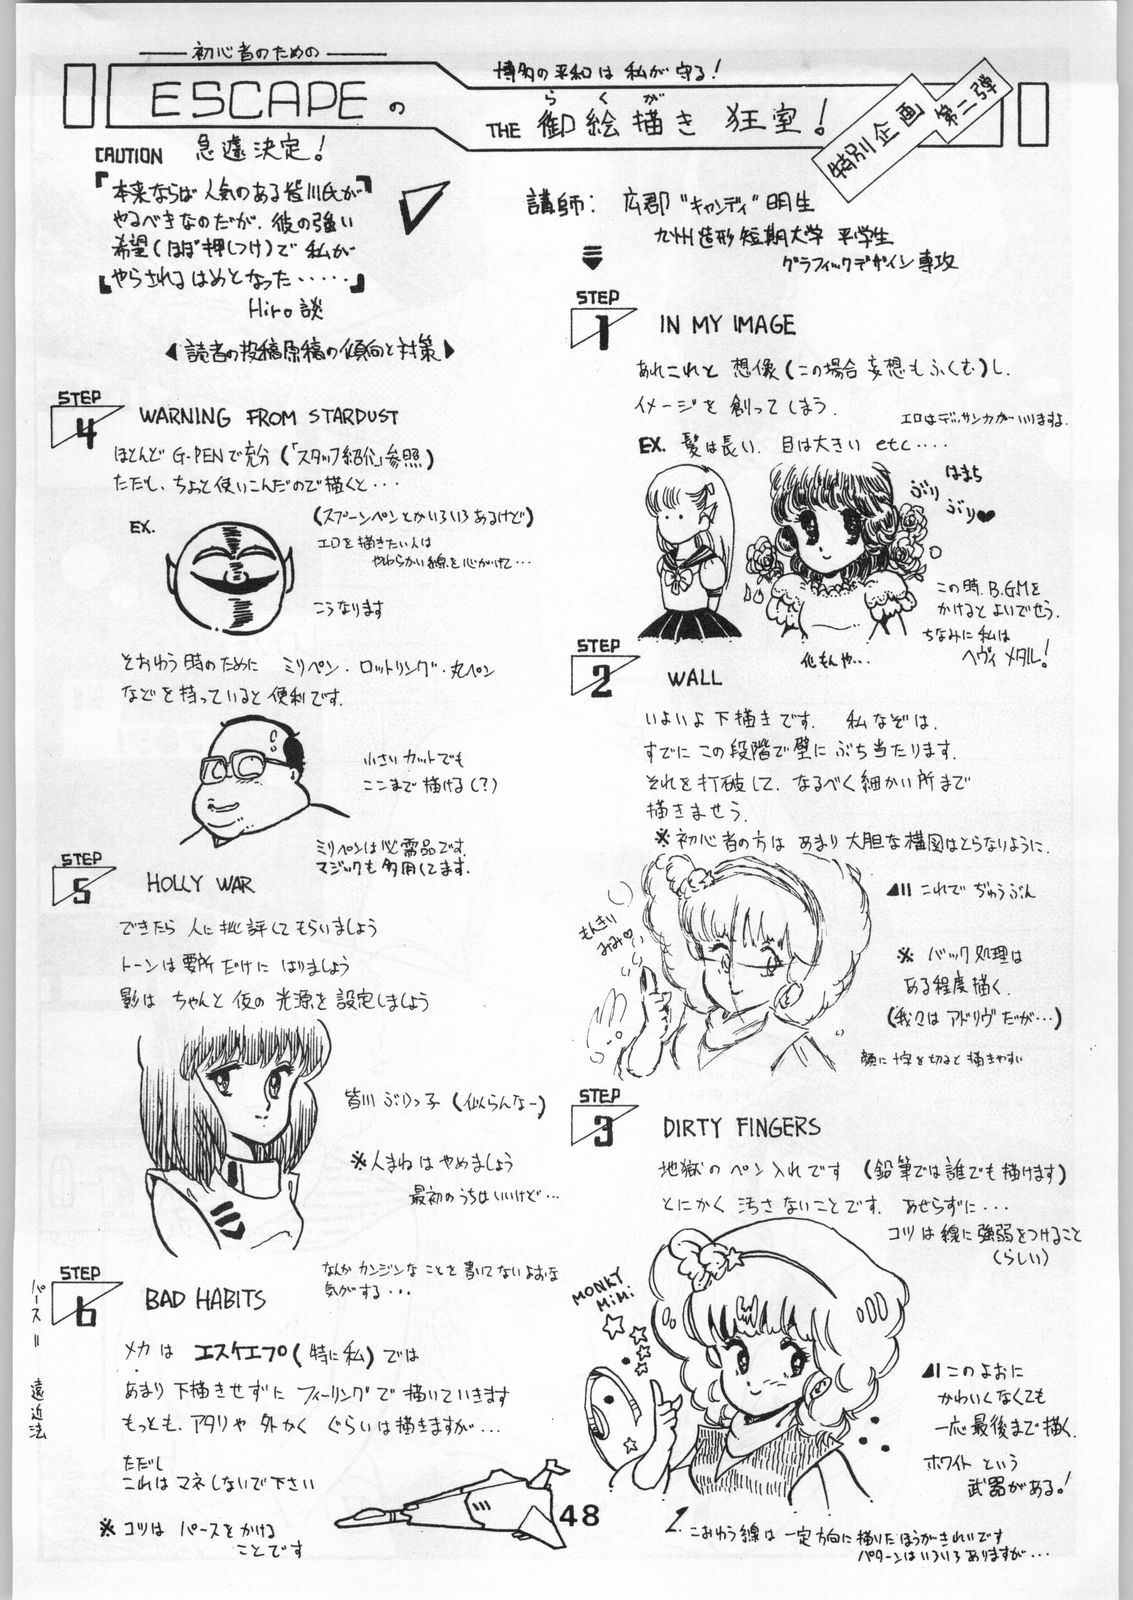 初心者のための
ESCAPEの
博多の平和は私が守る!
らくがき
THE 御絵描き 狂室!
特別企画
第二弾
CAUTION 急遽決定!
『本来ならば人気のある皆川氏が
やるべきなのだが、彼の強い
希望(ほぼ押しつけ)で私が
やらされるはめとなった・・・・・』
Hiro談
◀読者の投稿原稿の傾向と対策▶
講師: 広郡"キャンディ"明生
九州造形短期大学 平学生
グラフィックデザイン専攻
STEP
1
IN MY IMAGE
あれこれと 想像(この場合妄想もふくむ)し、
イメージを創ってしまう。
エロはデッサン力がいりますよ。
EX. 髪は長い、目は大きい etc‥‥
はまち
ぶり
ぶり♥
この時、B.G.Mを
かけるとよいでせう。
ちなみに私は
ヘヴィメタル!
STEP
2
WALL
いよいよ下描きです。 私なぞは、
すでにこの段階で壁にぶち当たります。
それを打破して、なるべく細かい所まで
描きませう。
※初心者の方は あまり大胆な構図はとらないように。
もんきい
みみ♡
これで ぢゅうぶん
※ バック処理は
ある程度描く。
(我々はアドリヴだが‥‥)
顔に十字を切ると描きやすい
STEP
3
DIRTY FINGERS
地獄のペン入れです (鉛筆では誰でも描けます)
とにかく汚さないことです。 あせらずに・・・
コツは線に強弱をつけること
(らしい)
MONKY
MiMi
このよおに
かわいくなくても
一応最後まで描く。
ホワイト という
武器がある!
こおゆう線は一定方向に描いたほうがきれいです
パターンはいろいろありますが‥‥
STEP
4
WARNING FROM STARDUST
ほとんど G-PENで充分(「スタッフ紹介」参照)
ただし、ちょと使いこんだので描くと‥‥
EX.
(スプーンペンとかいろいろあるけど)
エロを描きたい人は
やわらかい線を心がけて‥‥
こうなります
とおゆう時のために ミリペン・ロットリング・丸ペン
などを持っていると便利です。
小さいカットでも
ここまで描ける(?)
ミリペンは必需品です。
マジックも多用してます。
STEP
5
HOLLY WAR
できたら 人に批評してもらいましょう
トーンは要所だけに はりましょう
影は ちゃんと仮の光源を設定しましょう
皆川 ぶりっ子 (似らんなー)
※人まねはやめましょう
最初のうちはいいけど‥‥
なんかカンジンなことを書いてないよおな
気がする‥‥
STEP
6
BAD HABITS
メカは エスケエプ(特に私)では
あまり下描きせずにフィーリングで描いていきます
もっとも、アタリや外かくぐらいは描きますが‥‥
ただし
これはマネしないで下さい
※コツは パースをかける
ことです
パース=遠近法
48